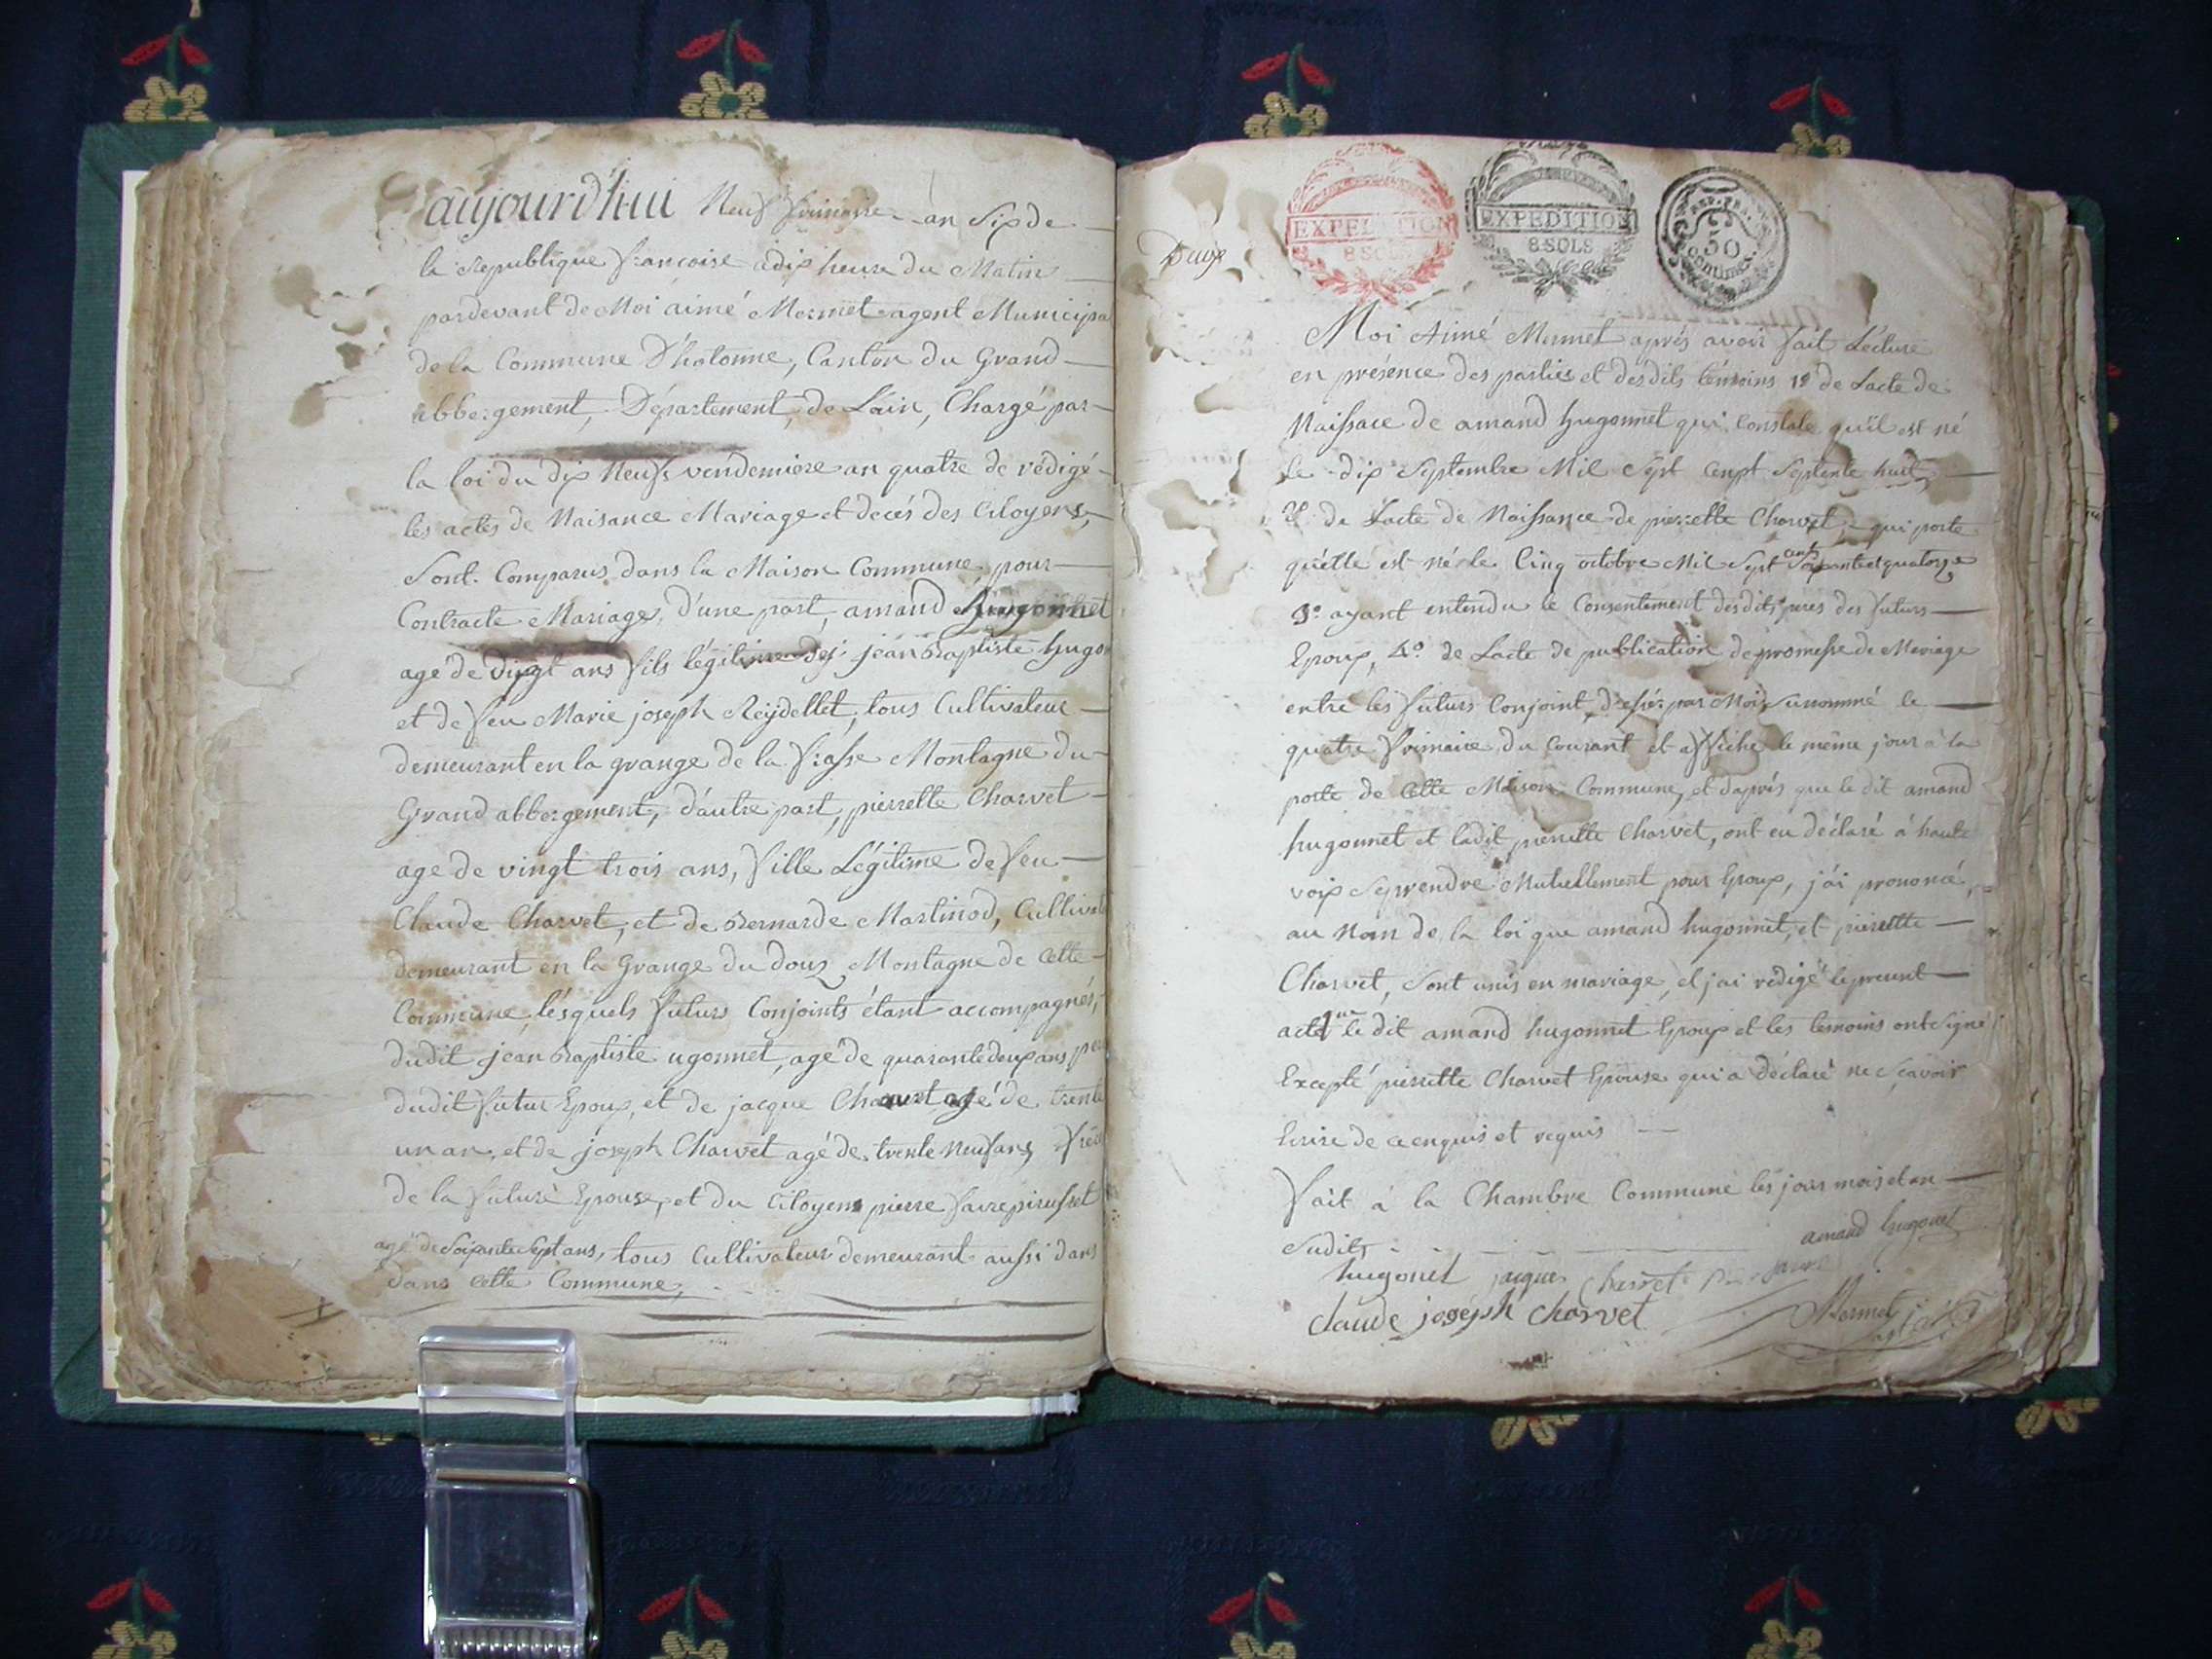 aujourd'hui Neuf frimaire an Six de
la Republique francoise a dix heure du Matin
pardevant de Moi aimé Mermet agent Municipa
de la Commune D'hotonne, Canton du Grand
abbergement, Département, de Lain, Chargé par
la loi du dix Neufs vendemiere an quatre de rédigé
les actes de Naisance Mariage et decés des Citoyens,
Sont Comparus dans la Maison Commune, pour
Contracte Mariage, D'une part, amand hugonnet
agé de vingt ans fils légitime de jean Baptiste hugo
et de feu Marie joseph Reydellet, tous Cultivateur
demeurant en la grange de la frasse Montagne du
Grand abbergement, d'autre part, pierrette Charvet
age de vingt trois ans, fille Légitime de feu
Claude Charvet, et de Bernarde Martinod, Cultivate
demeurant en la Grange du douz Montagne de Cette
Commune, lésquels futurs Conjoints étant accompagnés,
dudit jean Baptiste ugonnet, agé de quarante deux ans pe
dudit futur Epoux, et de jacque Charvet agé de trente
un an, et de joseph Charvet agé de trente neuf ans, frère
de la future Epouse, et du Citoyens pierre favre
agé de Soixante Sept ans, tous Cultivateur demeurant aussi dans
dans Cette Commune,
EXPEDITION
8 SOLS
EXPEDITION
8 SOLS
REP. FRA.
50
centimes
Deux
Moi Aimé Mermet aprés avoir fait Lécture
en présence des parties et desdits témoins 1º de Lacte de
Naissace de amand hugonnet qui Constate qu'il est né
le dix Septembre Mil Sept Cenpt Septente huit,
2º de Lacte de Naissance de pierrette Charvet, qui porte
qu'elle est né le Cinq octobre Mil Sept cent Soixante et quatorze
3º ayant entendu le Consentement desdits peres des futurs
Epoux, 4º de Lacte de publication de promesse de Mariage
entre les futurs Conjoint, dressé par Moi Sunommé le
quatre frimaire du Courant et affiché le même jour a la
porte de Cette Maison Commune, et daprés que le dit amand
hugonnet et ladit pierrette Charvet, ont eu déclaré á haute
voix Seprendre Mutuellement pour Epoux, j'ai prononcé,
au Nom de la loi que amand hugonnet, et pierrette
Charvet, Sont unis en mariage, et j'ai rédigé le present
acte le dit amand hugonnet Epoux et les temoins ont Signé
Excepté pierrette Charvet Epouse qui a déclaré ne Sçavoir
Ecrire de ce enquis et requis
fait a la Chambre Commune les jour mois et an
Sudits
amand hugonet
hugonet jacque Charvet
claude joséph charvet
Mermet